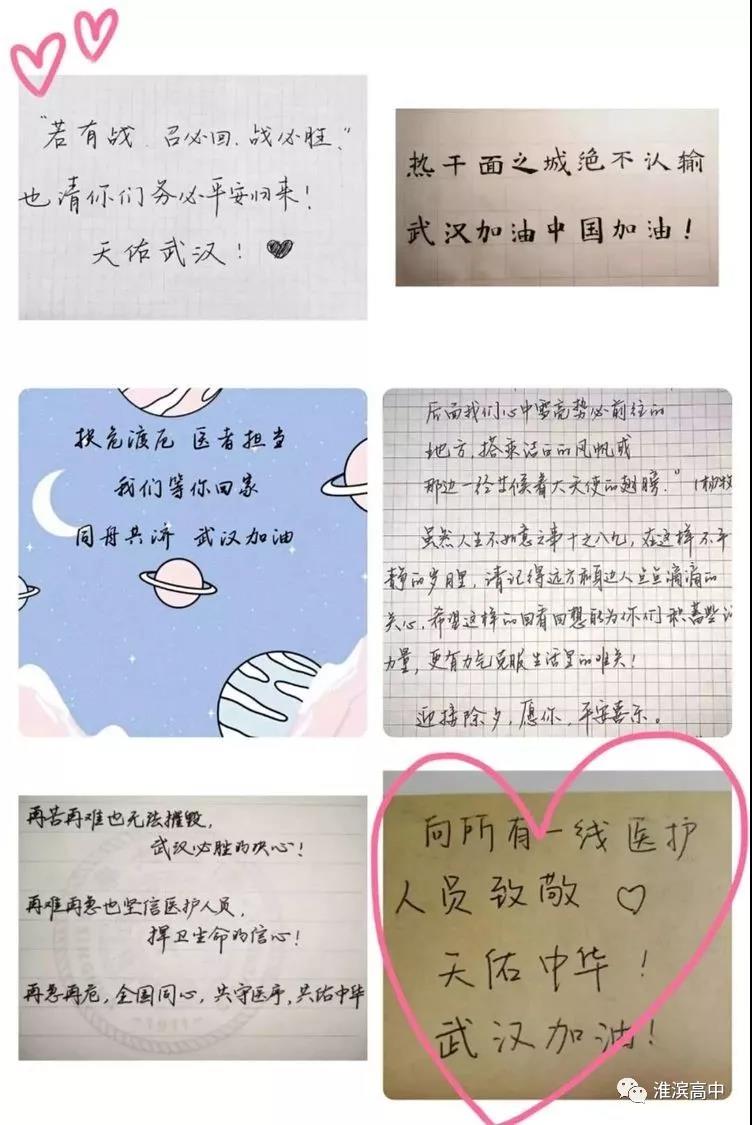 “若有战、召必回、战必胜.”
也请你们务必平安归来！
天佑武汉！
热干面之城绝不认输
武汉加油中国加油！
扶危渡厄 医者担当
我们等你回家
同舟共济 武汉加油
后面我们心中雪亮势必前往的
地方，搭乘洁白的风帆或
那边一经等候着大天使的翅膀。”（杨牧
虽然人生不如意之事十之八九，在这样不平
静的岁月里，请记得远方和身边人点点滴滴的
关心，希望这样的回看回想能为你们积蓄些
力量，更有力气克服生活里的难关！
迎接除夕，愿你，平安喜乐。
再苦再难也无法摧毁，
武汉必胜的决心！
再难再急也坚信医护人员，
捍卫生命的信心！
再急再危，全国同心，共守医序，共佑中华
向所有一线医护
人员致敬
天佑中华！
武汉加油！
淮滨高中